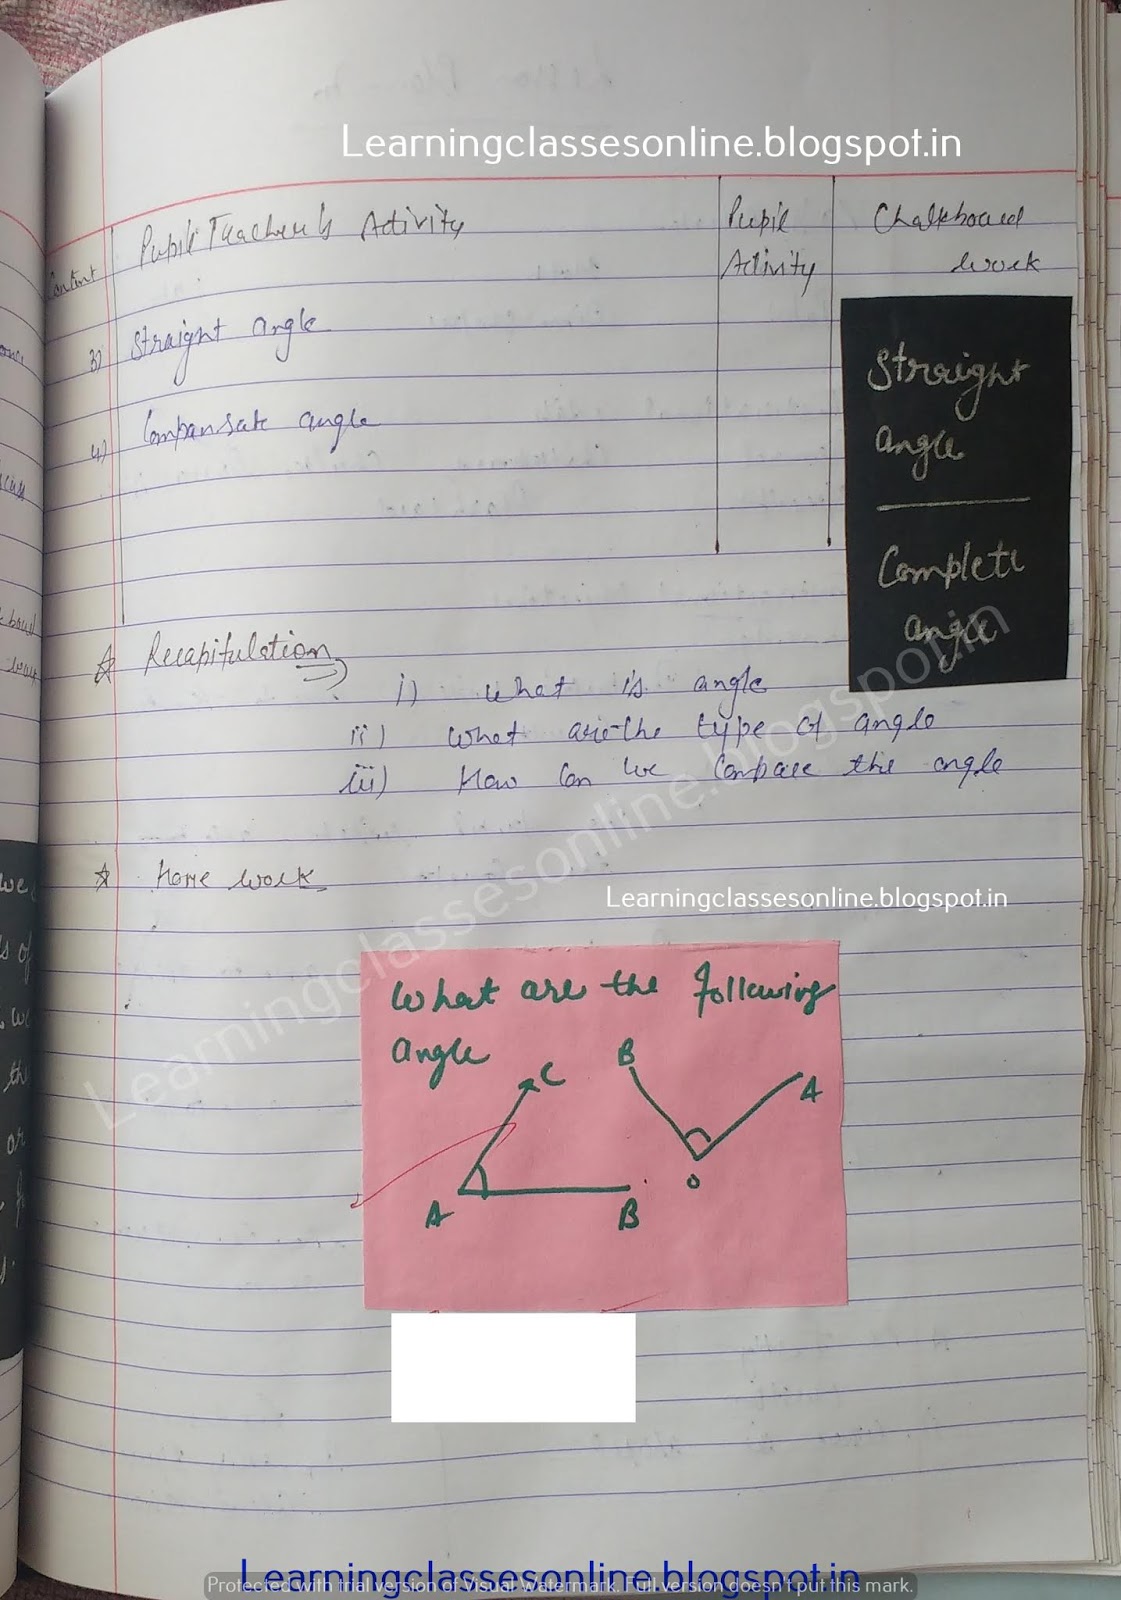 Learningclassesonline.blogspot.in
Content
Pupil Teacher's Activity
Pupil
Activity
Chalkboard
work
3) Straight angle
4) Compansate angle
Straight
angle
Complete
angle
Recapitulation
i) What is angle
ii) What are the type of angle
iii) How can we compare the angle
Home work
Learningclassesonline.blogspot.in
Learningclassesonline.blogspot.in
What are the following
angle
C
A
B
B
A
O
Learningclassesonline.blogspot.in
Protected with trial version of Visual Watermark. Full version doesn't put this mark.